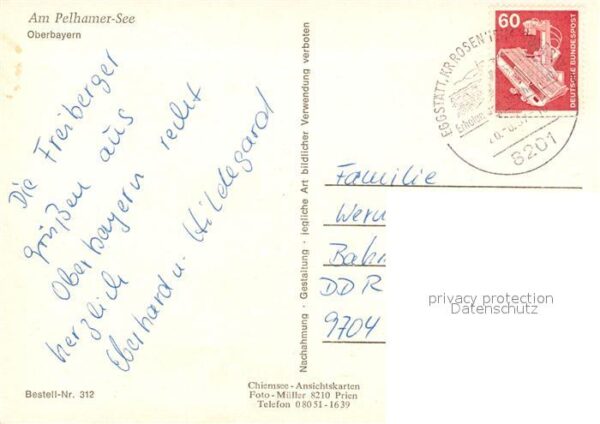 Am Pelhamer-See
Oberbayern
Die Freiberger
grüßen aus
Oberbayern recht
herzlich
Eberhard u. Hildegard
Bestell-Nr. 312
Nachahmung · Gestaltung · jegliche Art bildlicher Verwendung verboten
Chiemsee-Ansichtskarten
Foto-Müller 8210 Prien
Telefon 08051-1639
60
DEUTSCHE BUNDESPOST
EGGSTÄTT, KR. ROSEN
8201
Familie
Wern
Bahn
DDR
9704
privacy protection
Datenschutz